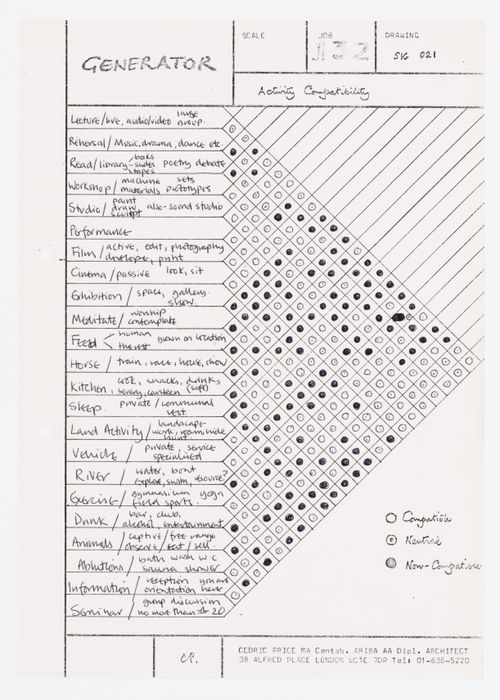 GENERATOR
SCALE
JOB
132
DRAWING
SK 021
Activity Compatibility
Lecture/live, audio/video large group.
Rehersal/Music, drama, dance etc.
Read/library-slides books tapes poetry debate
Workshop/machine sets
materials prototypes
Studio/paint draw sculpt also-sound studio
Performance
Film/active, edit, photography
develope, print
Cinema/passive look, sit
Exhibition/space, gallery.
show.
Meditate/worship
contemplate
Feed human
grown on location
Horse/train, race, house, show
Kitchen cook, snacks, drinks
(soft)
Sleep. private/communal
rest.
Land Activity/landscape
Vehicle/private, service
specialised
River/water, boat
explore, swim, resource
Exercise/gymnasium yoga
field sports.
Drink/bar, club,
alcohol, entertainment
Animals/captive/free range
observe/eat/sell.
Ablutions/bath wash w c
sauna shower
Information/reception you are
orientation here
Seminar/group discussion
no more than 20
Compatible
Neutral
Non-Compatible
CP.
CEDRIC PRICE MA Cantab. ARIBA AA Dipl. ARCHITECT
38 ALFRED PLACE LONDON WC1E 7DP Tel: 01-636-5220